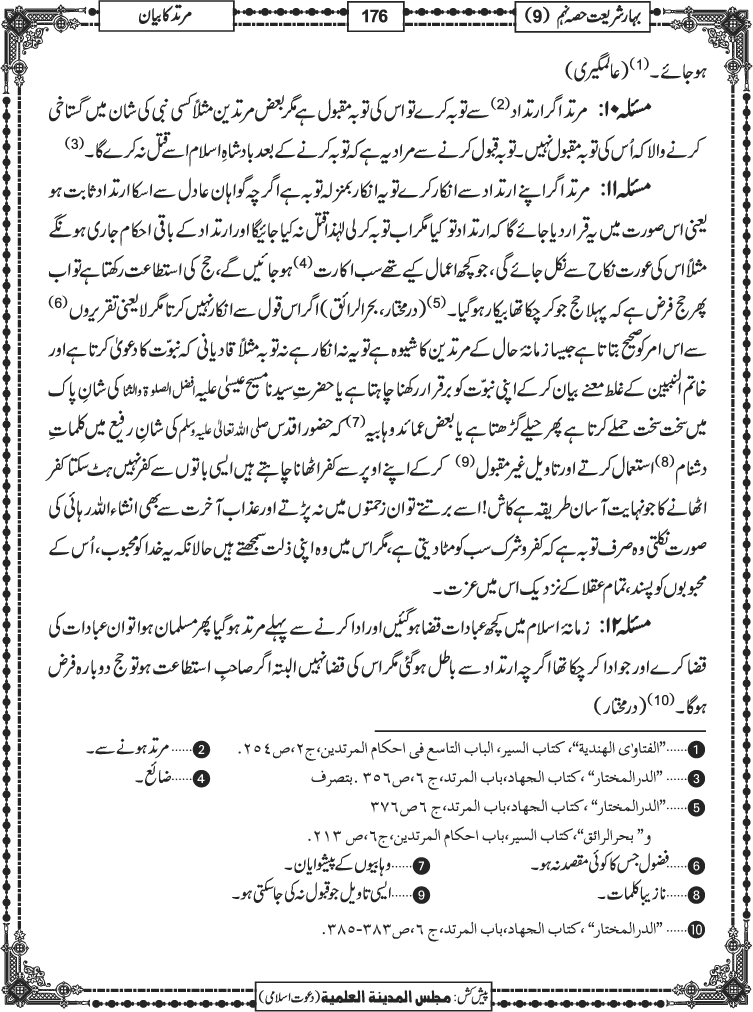 بہارِ شریعت حصہ نہم (9)
176
مرتد کا بیان
ہوجائے۔(1) (عالمگیری)
مسئلہ ۱۰: مرتد اگر ارتداد(2) سے توبہ کرے تو اس کی توبہ مقبول ہے مگر بعض مرتدین مثلاً کسی نبی کی شان میں گستاخی
کرنے والا کہ اُس کی توبہ مقبول نہیں۔ توبہ قبول کرنے سے مراد یہ ہے کہ توبہ کرنے کے بعد بادشاہِ اسلام اسے قتل نہ کرے گا۔(3)
مسئلہ ۱۱: مرتد اگر اپنے ارتداد سے انکار کرے تو یہ انکار بمنزلہ توبہ ہے اگرچہ گواہانِ عادل سے اسکا ارتداد ثابت ہو
یعنی اس صورت میں یہ قرار دیا جائے گا کہ ارتداد تو کیا مگر اب توبہ کرلی لہٰذا قتل نہ کیا جائیگا اور ارتداد کے باقی احکام جاری ہونگے
مثلاً اس کی عورت نکاح سے نکل جائے گی، جو کچھ اعمال کیے تھے سب اکارت(4) ہوجائیں گے، حج کی استطاعت رکھتا ہے تو اب
پھر حج فرض ہے کہ پہلا حج جو کرچکا تھا بیکار ہوگیا۔(5) (درمختار، بحرالرائق) اگر اس قول سے انکار نہیں کرتا مگر لایعنی تقریروں(6)
سے اس امر کو صحیح بتاتا ہے جیسا زمانۂ حال کے مرتدین کا شیوہ ہے تو یہ نہ انکار ہے نہ توبہ مثلاً قادیانی کہ نبوّت کا دعویٰ کرتا ہے اور
خاتم النبیین کے غلط معنے بیان کرکے اپنی نبوّت کو برقرار رکھنا چاہتا ہے یا حضرتِ سیدنا مسیح عیسیٰ علیہ افضل الصلوۃ والثنا کی شانِ پاک
میں سخت سخت حملے کرتا ہے پھر حیلے گڑھتا ہے یا بعض عمائد وہابیہ(7) کہ حضور اقدس صلی اللہ تعالیٰ علیہ وسلم کی شانِ رفیع میں کلماتِ
دشنام(8) استعمال کرتے اور تاویل غیر مقبول(9) کرکے اپنے اوپر سے کفر اٹھانا چاہتے ہیں ایسی باتوں سے کفر نہیں ہٹ سکتا کفر
اٹھانے کا جو نہایت آسان طریقہ ہے کاش! اسے برتتے تو ان زحمتوں میں نہ پڑتے اور عذاب آخرت سے بھی انشاء اللہ رہائی کی
صورت نکلتی وہ صرف توبہ ہے کہ کفر و شرک سب کو مٹا دیتی ہے، مگر اس میں وہ اپنی ذلت سمجھتے ہیں حالانکہ یہ خدا کو محبوب، اُس کے
محبوبوں کو پسند، تمام عقلا کے نزدیک اس میں عزت۔
مسئلہ ۱۲: زمانۂ اسلام میں کچھ عبادات قضا ہوگئیں اور ادا کرنے سے پہلے مرتد ہوگیا پھر مسلمان ہوا تو ان عبادات کی
قضا کرے اور جو ادا کرچکا تھا اگرچہ ارتداد سے باطل ہوگئی مگر اس کی قضا نہیں البتہ اگر صاحبِ استطاعت ہو تو حج دوبارہ فرض
ہوگا۔(10) (درمختار)
1......"الفتاوی الهندية"، کتاب السیر، الباب التاسع فی احکام المرتدین، ج۲، ص۲۵٤. 2...... مرتد ہونے سے۔
3...... "الدرالمختار"، کتاب الجهاد، باب المرتد، ج ۶، ص۳۵۶. بتصرف 4......ضائع۔
5......"الدرالمختار"، کتاب الجهاد، باب المرتد، ج ۶ ص۳۷۶
و" بحرالرائق"، کتاب السیر، باب احکام المرتدین، ج۶، ص ۲۱۳.
6......فضول جس کا کوئی مقصد نہ ہو۔ 7......وہابیوں کے پیشوایان۔
8......نازیبا کلمات۔ 9......ایسی تاویل جو قبول نہ کی جاسکتی ہو۔
10...... "الدرالمختار"، کتاب الجهاد، باب المرتد، ج ۶، ص۳۸۳-۳۸۵.
پیش کش: مجلس المدینة العلمیة (دعوت اسلامی)